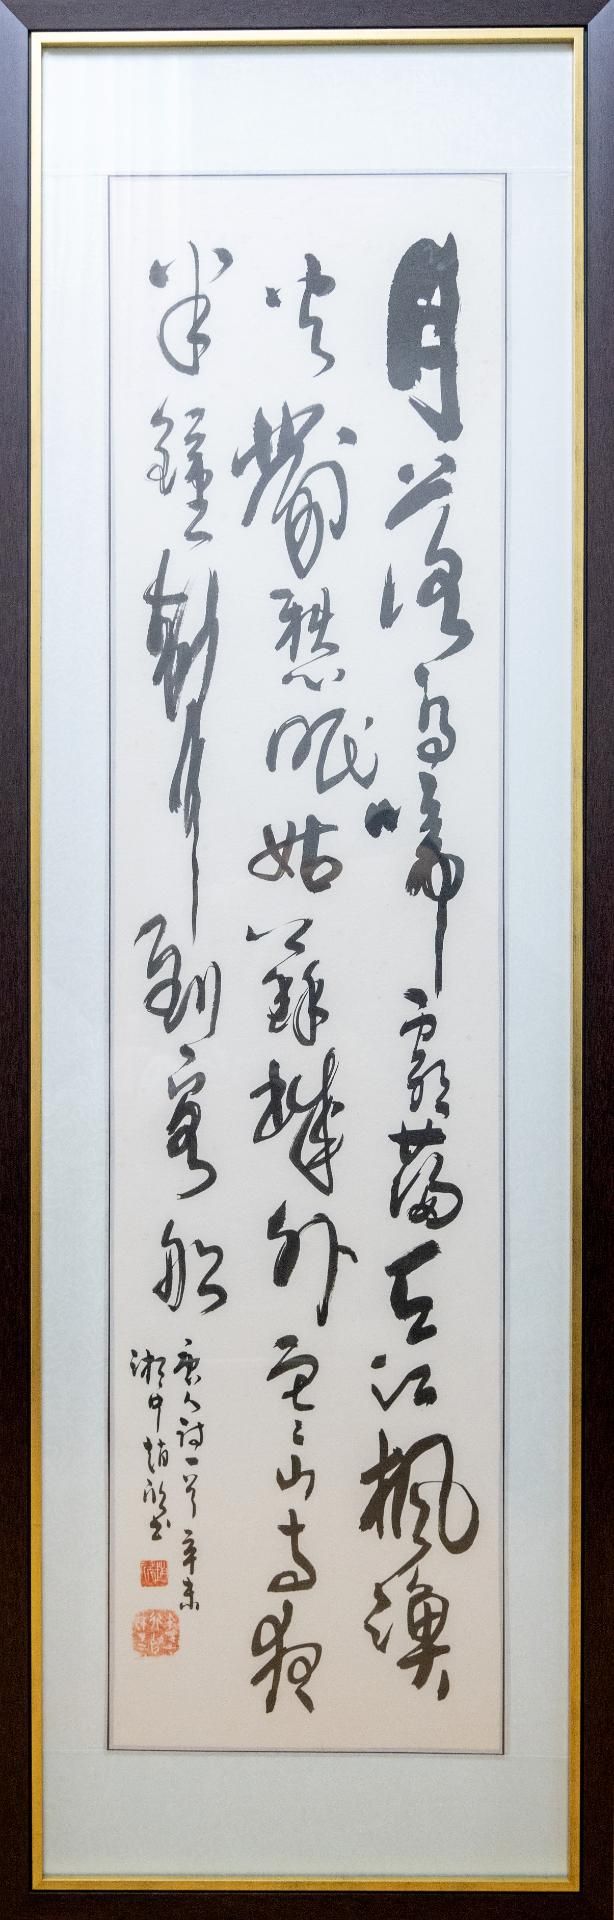 月落烏啼霜滿天江楓漁
火對愁眠姑蘇城外寒山寺夜
半鐘聲到客船
唐人詩一首辛未
湘中趙書